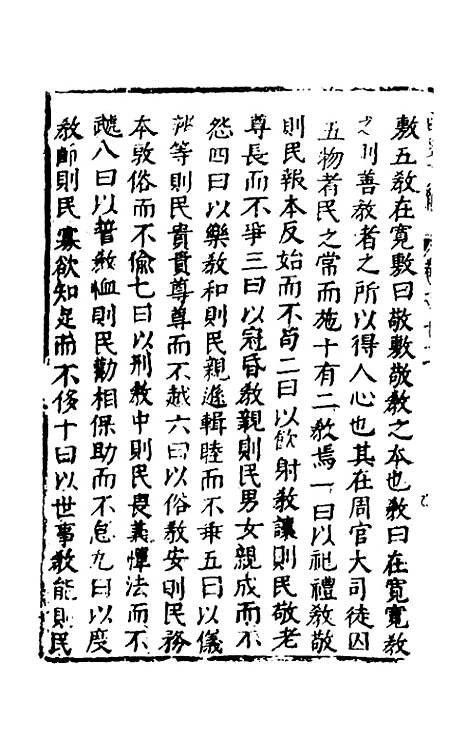 敷五教在寬敷曰敬敷敬教之本也教曰在寬寬教
之則善教者之所以得人心也其在周官大司徒因
五物者民之常而施十有二教焉一曰以祀禮教敬
則民報本反始而不苟二曰以飲射教讓則民敬老
尊長而不爭三曰以冠昏教親則民男女親成而不
怨四曰以樂教和則民親遜輯睦而不乖五曰以儀
辨等則民貴貴尊尊而不越六曰以俗教安則民務
本敦俗而不偷七曰以刑教中則民畏義憚法而不
虣八曰以誓教恤則民勸相保助而不怠九曰以度
教節則民寡欲知足而不侈十曰以世事教能則民